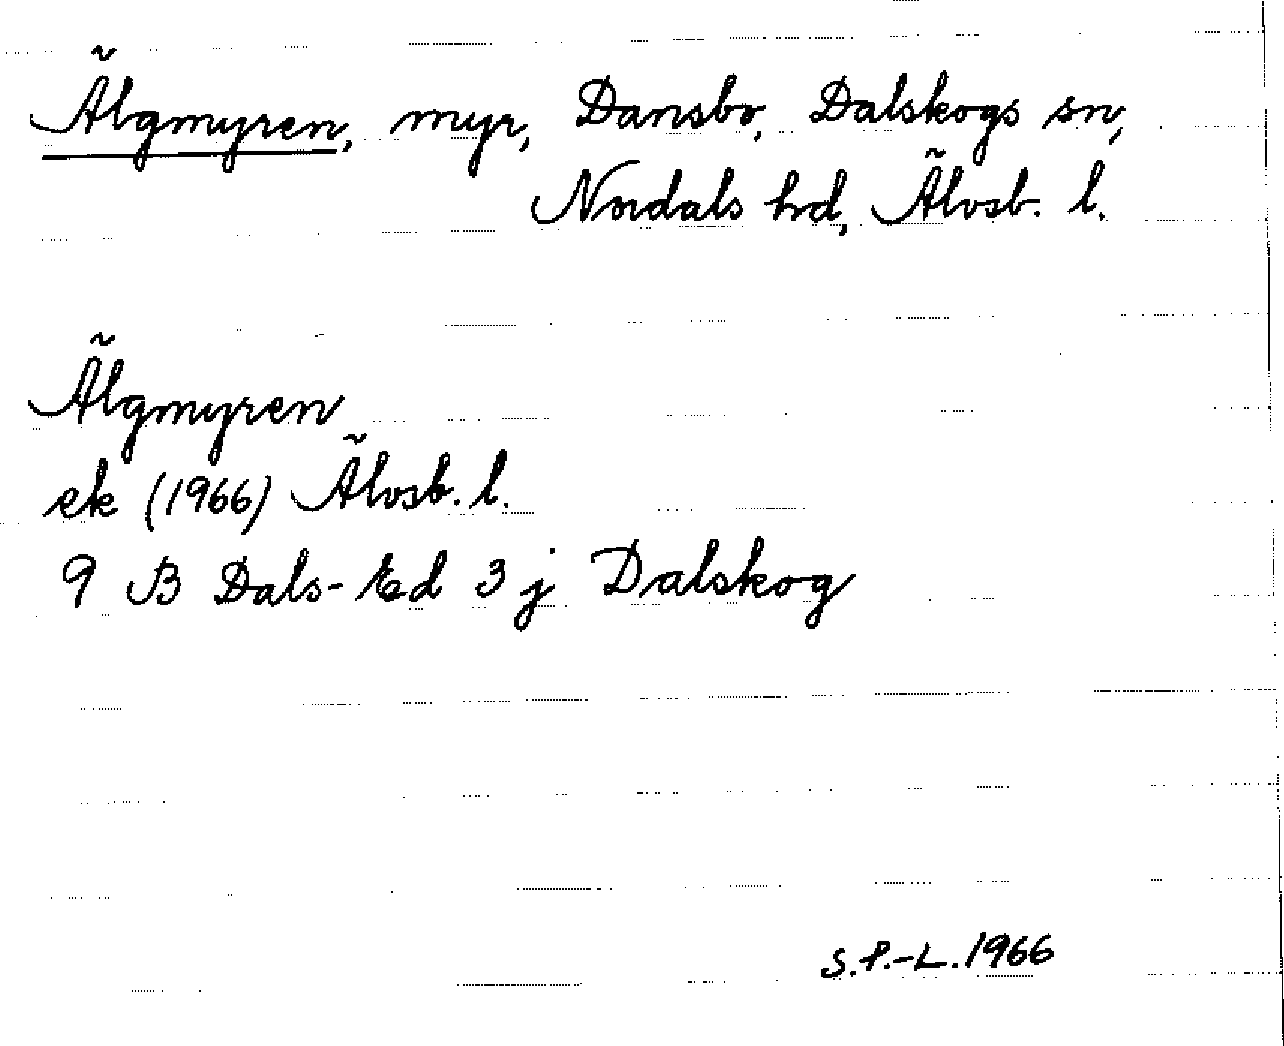 Älgmyren, myr, Dansbo, Dalskogs sn,
Nordals hd, Älvsb. l.
Älgmyren
ek (1966) Älvsb. l.
9 B Dals-Ed 3 j Dalskog
S.P.-L. 1966